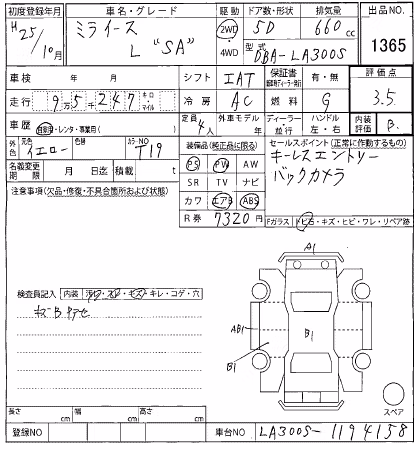 初度登録年月 車名・グレード 駆動 ドア数・形状 排気量 出品NO.
H25/10月 ミライース L "SA" 2WD・4WD 5D 660cc 1365
型式 DBA-LA300S
車検 年 月 シフト IAT 保証書 有・無 評価点
走行 9万5千247 キロ・マイル 冷房 AC 燃料 G 3.5
車歴 自家用・レンタ・事業用( ) 定員 4人 外車モデル 年 ディーラー 並行 ハンドル 左・右 内装評価 B
外色 元色 イエロー カラーNO T19 装備品(純正品に限る) セールスポイント(正常に作動するもの)
名義変更期限 月 日迄 積載 t PS PW AW キーレスエントリー
注意事項(欠品・修復・不具合箇所および状態) SR TV ナビ バックカメラ
カワ エアB ABS
R券 7320円 Fガラス トビ石・キズ・ヒビ・ワレ・リペア跡
A1
検査員記入 内装 汚れ・スレ・キズ・キレ・コゲ・穴
キズB
AB1 B1
B1
スペア
長さ cm 幅 cm 高さ cm
登録NO 車台NO LA300S-1194158